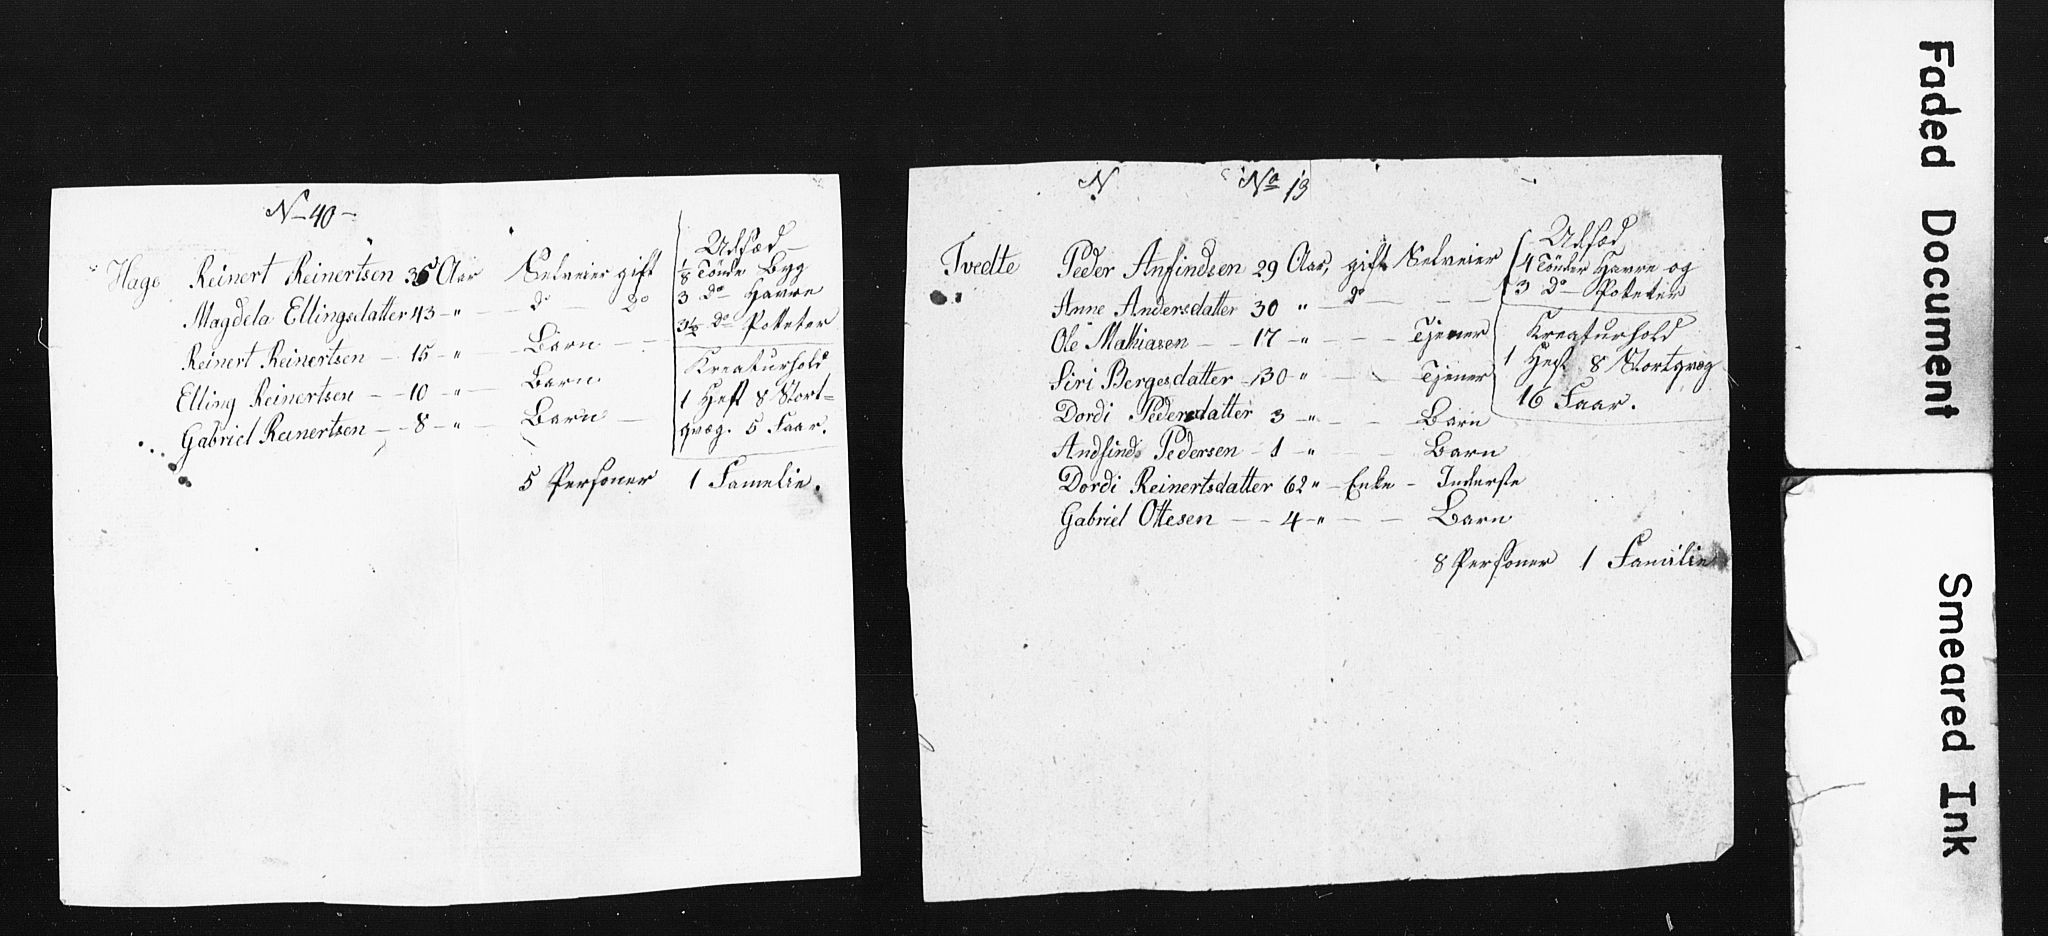 N– 40 –
Hage Reinert Reinertsen 35 Aar Selveier gift
Magdela Ellingsdatter 43 – „ – d° – d°
Reinert Reinertsen – 15 – „ – Barn – –
Elling Reinertsen – – 10 – „ – Barn
Gabriel Reinertsen – – 8 – „ – Barn –
Udsæd
1/8 Tönde Byg
3 d° Havre
3 1/2 d° Potteter
Kreaturhold
1 Hest 8 Stort=
qvæg. 5 Faar.
5 Personer 1 Famelie.
N No 13
Tvedte Peder Anfindsen 29 Aar, gift Selveier
Anne Andersdatter 30 „ – d° – – –
Ole Mathiasen – – 17 – „ – – – Tjener
Siri Bergesdatter – 30 – „ – – – Tjener
Dordi Pedersdatter 3 – „ – – – Barn
Andfind Pedersen – 1 – „ – – – Barn
Dordi Reinertsdatter 62 „ – Enke – Inderste
Gabriel Ottesen – – 4 – „ – – – Barn
Udsæd
4 Tönder Havre og
3 d° Poteter
Kreaturhold
1 Hest 8 Stortqvæg
16 Faar.
8 Personer 1 Familie
Faded Document
Smeared Ink